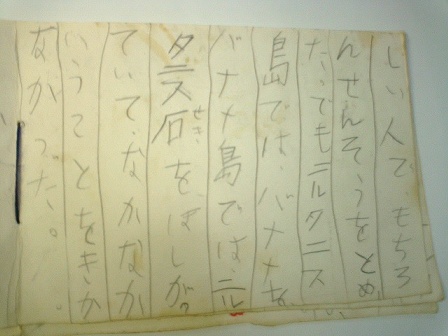 しい人でもちろ
んせんそうをとめ
た。でもニルタニス
島では、バナナを、
バナナ島ではニル
タニス石をほしが。
せき
ていて、なかなか
いうことをきか
なかった。